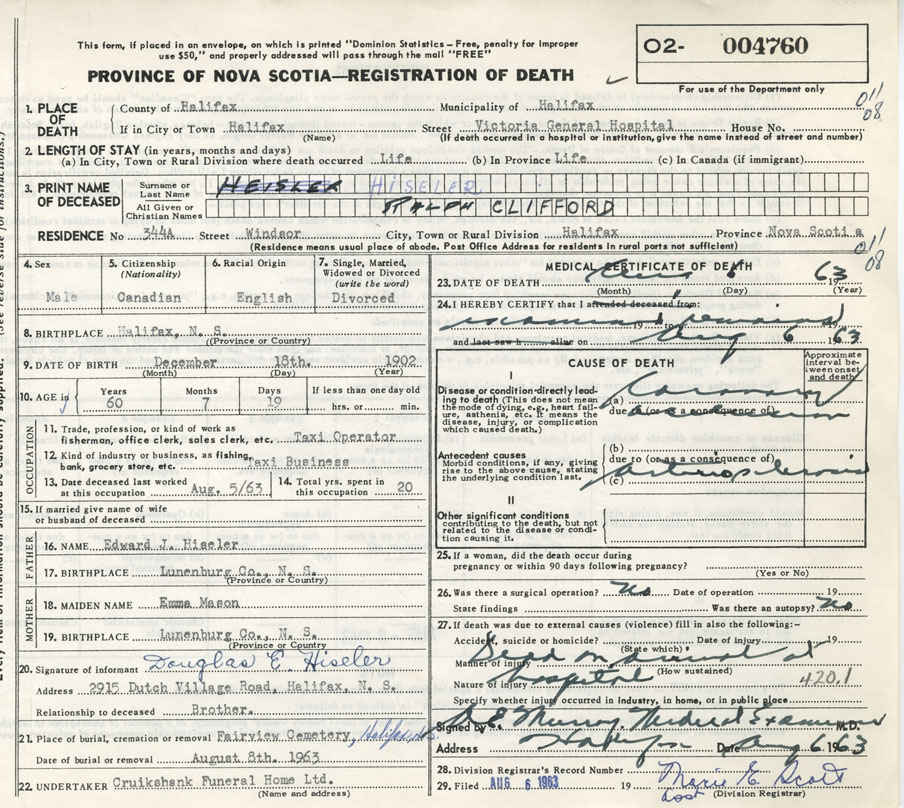 This form, if placed in an envelope, on which is printed "Dominion Statistics – Free, penalty for improper
use $50," and properly addressed will pass through the mail "FREE"
O2- 004760
PROVINCE OF NOVA SCOTIA—REGISTRATION OF DEATH
For use of the Department only
1. PLACE OF DEATH County of Halifax Municipality of Halifax 011 08
If in City or Town Halifax Street Victoria General Hospital House No.
(Name) (If death occurred in a hospital or institution, give the name instead of street and number)
2. LENGTH OF STAY (in years, months and days)
(a) In City, Town or Rural Division where death occurred Life (b) In Province Life (c) In Canada (if immigrant)
3. PRINT NAME OF DECEASED Surname or Last Name HEISLER HISELER
All Given or Christian Names RALPH CLIFFORD
RESIDENCE No 344A Street Windsor City, Town or Rural Division Halifax Province Nova Scotia
(Residence means usual place of abode. Post Office Address for residents in rural parts not sufficient) 011 08
4. Sex Male
5. Citizenship (Nationality) Canadian
6. Racial Origin English
7. Single, Married, Widowed or Divorced (write the word) Divorced
8. BIRTHPLACE Halifax, N. S.
(Province or Country)
9. DATE OF BIRTH December 18th. 1902
(Month) (Day) (Year)
10. AGE in Years 60 Months 7 Days 19 If less than one day old hrs. or min.
OCCUPATION
11. Trade, profession, or kind of work as
fisherman, office clerk, sales clerk, etc. Taxi Operator
12. Kind of industry or business, as fishing,
bank, grocery store, etc. Taxi Business
13. Date deceased last worked at this occupation Aug. 5/63
14. Total yrs. spent in this occupation 20
15. If married give name of wife
or husband of deceased
FATHER
16. NAME Edward J. Hiseler
17. BIRTHPLACE Lunenburg Co., N. S.
(Province or Country)
MOTHER
18. MAIDEN NAME Emma Mason
19. BIRTHPLACE Lunenburg Co., N. S.
(Province or Country)
20. Signature of informant Douglas E. Hiseler
Address 2915 Dutch Village Road, Halifax, N. S.
Relationship to deceased Brother.
21. Place of burial, cremation or removal Fairview Cemetery, Halifax, N.S.
Date of burial or removal August 8th. 1963
22. UNDERTAKER Cruikshank Funeral Home Ltd.
(Name and address)
MEDICAL CERTIFICATE OF DEATH
23. DATE OF DEATH Aug 6 1963
(Month) (Day) (Year)
24. I HEREBY CERTIFY that I attended deceased from:
examined remains 19 to 19
and last saw h alive on Aug 6 1963
CAUSE OF DEATH
Approximate interval between onset and death
I
Disease or condition directly leading to death (This does not mean
the mode of dying, e.g., heart failure, asthenia, etc. It means the
disease, injury, or complication
which caused death.)
(a) Coronary
due to (or as a consequence of)
Antecedent causes
Morbid conditions, if any, giving
rise to the above cause, stating
the underlying condition last.
(b)
due to (or as a consequence of)
arteriosclerosis
(c)
II
Other significant conditions
contributing to the death, but not
related to the disease or condition
causing it.
25. If a woman, did the death occur during
pregnancy or within 90 days following pregnancy?
(Yes or No)
26. Was there a surgical operation? No Date of operation 19
State findings Was there an autopsy? No
27. If death was due to external causes (violence) fill in also the following:-
Accident, suicide or homicide? Date of injury 19
(State which)
Dead on arrival at
Manner of injury
(How sustained)
hospital
Nature of injury 420.1
Specify whether injury occurred in industry, in home, or in public place
Signed by Murray Medical Examiner M.D.
Address Halifax Date Aug 6 1963
28. Division Registrar's Record Number
29. Filed AUG 6 1963 19 Marie E Scott
(Division Registrar)